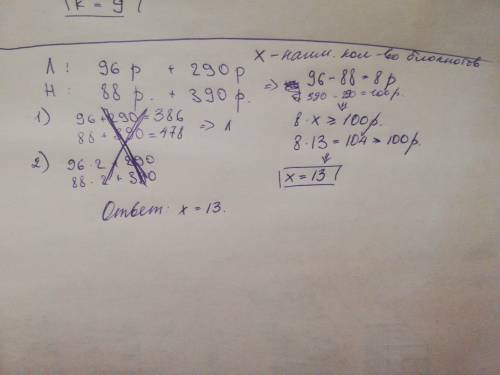 |k = 9|
Л: 96 р + 290 р
Н: 88 р. + 390 р.
1) 96 + 290 = 386
88 + 390 = 478 => Л
2) 96 · 2 + 290
88 · 2 + 390
Ответ: x = 13.
X - наим. кол-во блокнотов
=> 96 - 88 = 8 р
390 - 290 = 100 р.
8 · x ≥ 100 р.
8 · 13 = 104 > 100 р.
|x = 13|